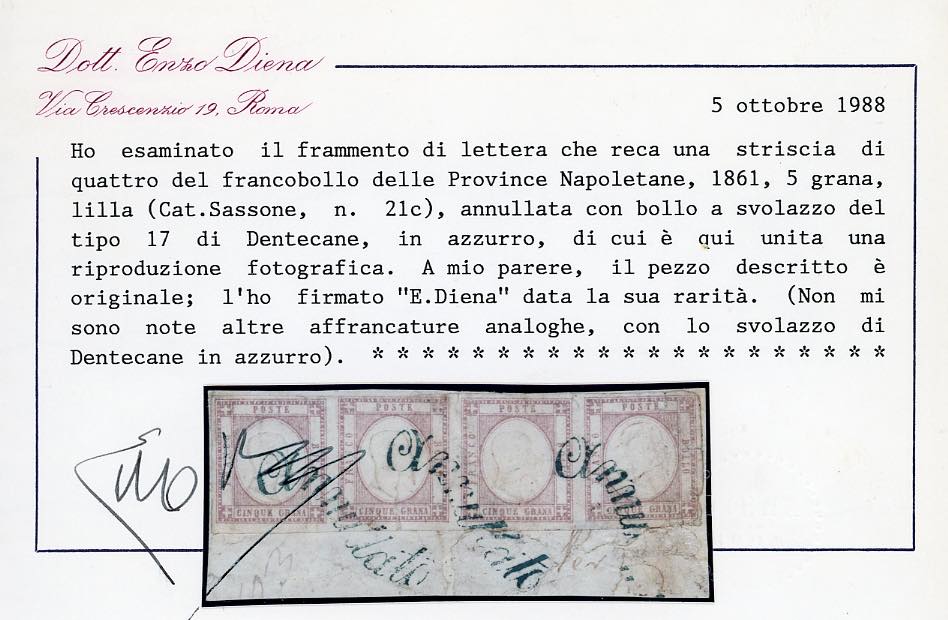 Dott. Enzo Diena
Via Crescenzio 19, Roma
5 ottobre 1988
Ho esaminato il frammento di lettera che reca una striscia di
quattro del francobollo delle Province Napoletane, 1861, 5 grana,
lilla (Cat.Sassone, n. 21c), annullata con bollo a svolazzo del
tipo 17 di Dentecane, in azzurro, di cui è qui unita una
riproduzione fotografica. A mio parere, il pezzo descritto è
originale; l'ho firmato "E.Diena" data la sua rarità. (Non mi
sono note altre affrancature analoghe, con lo svolazzo di
Dentecane in azzurro). * * * * * * * * * * * * * * * * * * * * * *
POSTE POSTE POSTE POSTE
FRANCO BOLLO FRANCO BOLLO
Annullato Annullato Annul
CINQUE GRANA CINQUE GRANA CINQUE GRANA CINQUE GRANA